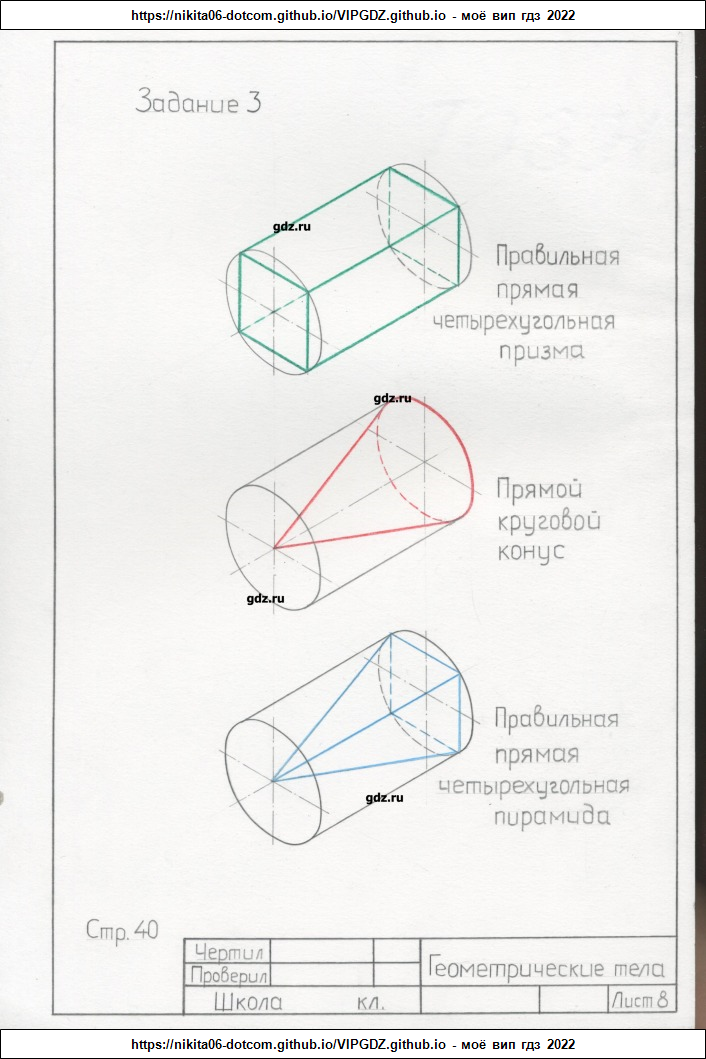 https://nikita06-dotcom.github.io/VIPGDZ.github.io - моё вип гдз 2022
Задание 3
gdz.ru
Правильная
прямая
четырехугольная
призма
gdz.ru
Прямой
круговой
конус
gdz.ru
Правильная
прямая
четырехугольная
пирамида
gdz.ru
Стр. 40
Чертил
Проверил
Геометрические тела
Школа кл.
Лист 8
https://nikita06-dotcom.github.io/VIPGDZ.github.io - моё вип гдз 2022